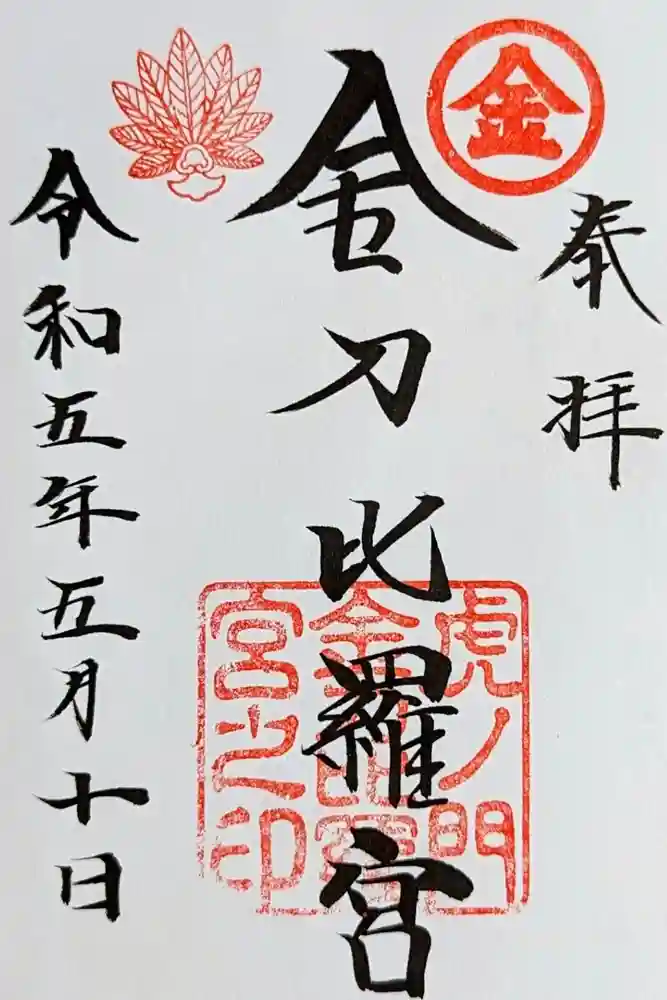 金
奉拝
金刀比羅宮
虎ノ門
金刀比羅
宮之印
令和五年五月十日